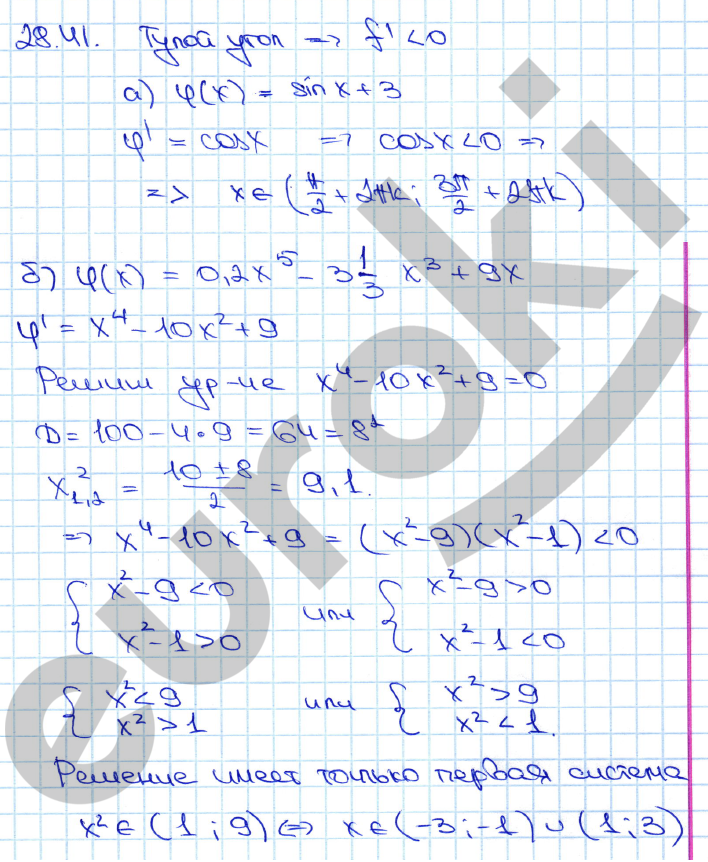 28.41. Тупой угол => f' < 0
а) φ(x) = sin x + 3
φ' = cos x => cos x < 0 =>
=> x ∈ (π/2 + 2πk; 3π/2 + 2πk)
б) φ(x) = 0,2x⁵ - 3 1/3 x³ + 9x
φ' = x⁴ - 10x² + 9
Решим ур-ие x⁴ - 10x² + 9 = 0
D = 100 - 4·9 = 64 = 8²
x²₁,₂ = (10 ± 8)/2 = 9, 1.
=> x⁴ - 10x² + 9 = (x² - 9)(x² - 1) < 0
{ x² - 9 < 0 или { x² - 9 > 0
x² - 1 > 0 x² - 1 < 0
{ x² < 9 или { x² > 9
x² > 1 x² < 1.
Решение имеет только первая система
x² ∈ (1; 9) <=> x ∈ (-3; -1) ∪ (1; 3)
euroki